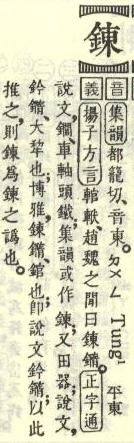 錬
音 集韻都龍切、音東。ㄉㄨㄥ Tung¹ 平東
義 揚子方言輨軑、趙魏之間曰錬䥷。正字通
說文、鐗、車軸頭鐵、集韻或作錬、又田器、說文、
鈐䥷、大犂也、博雅、錬䥷、錧也、卽說文鈐䥷、以此
推之、則錬爲鍊之譌也。